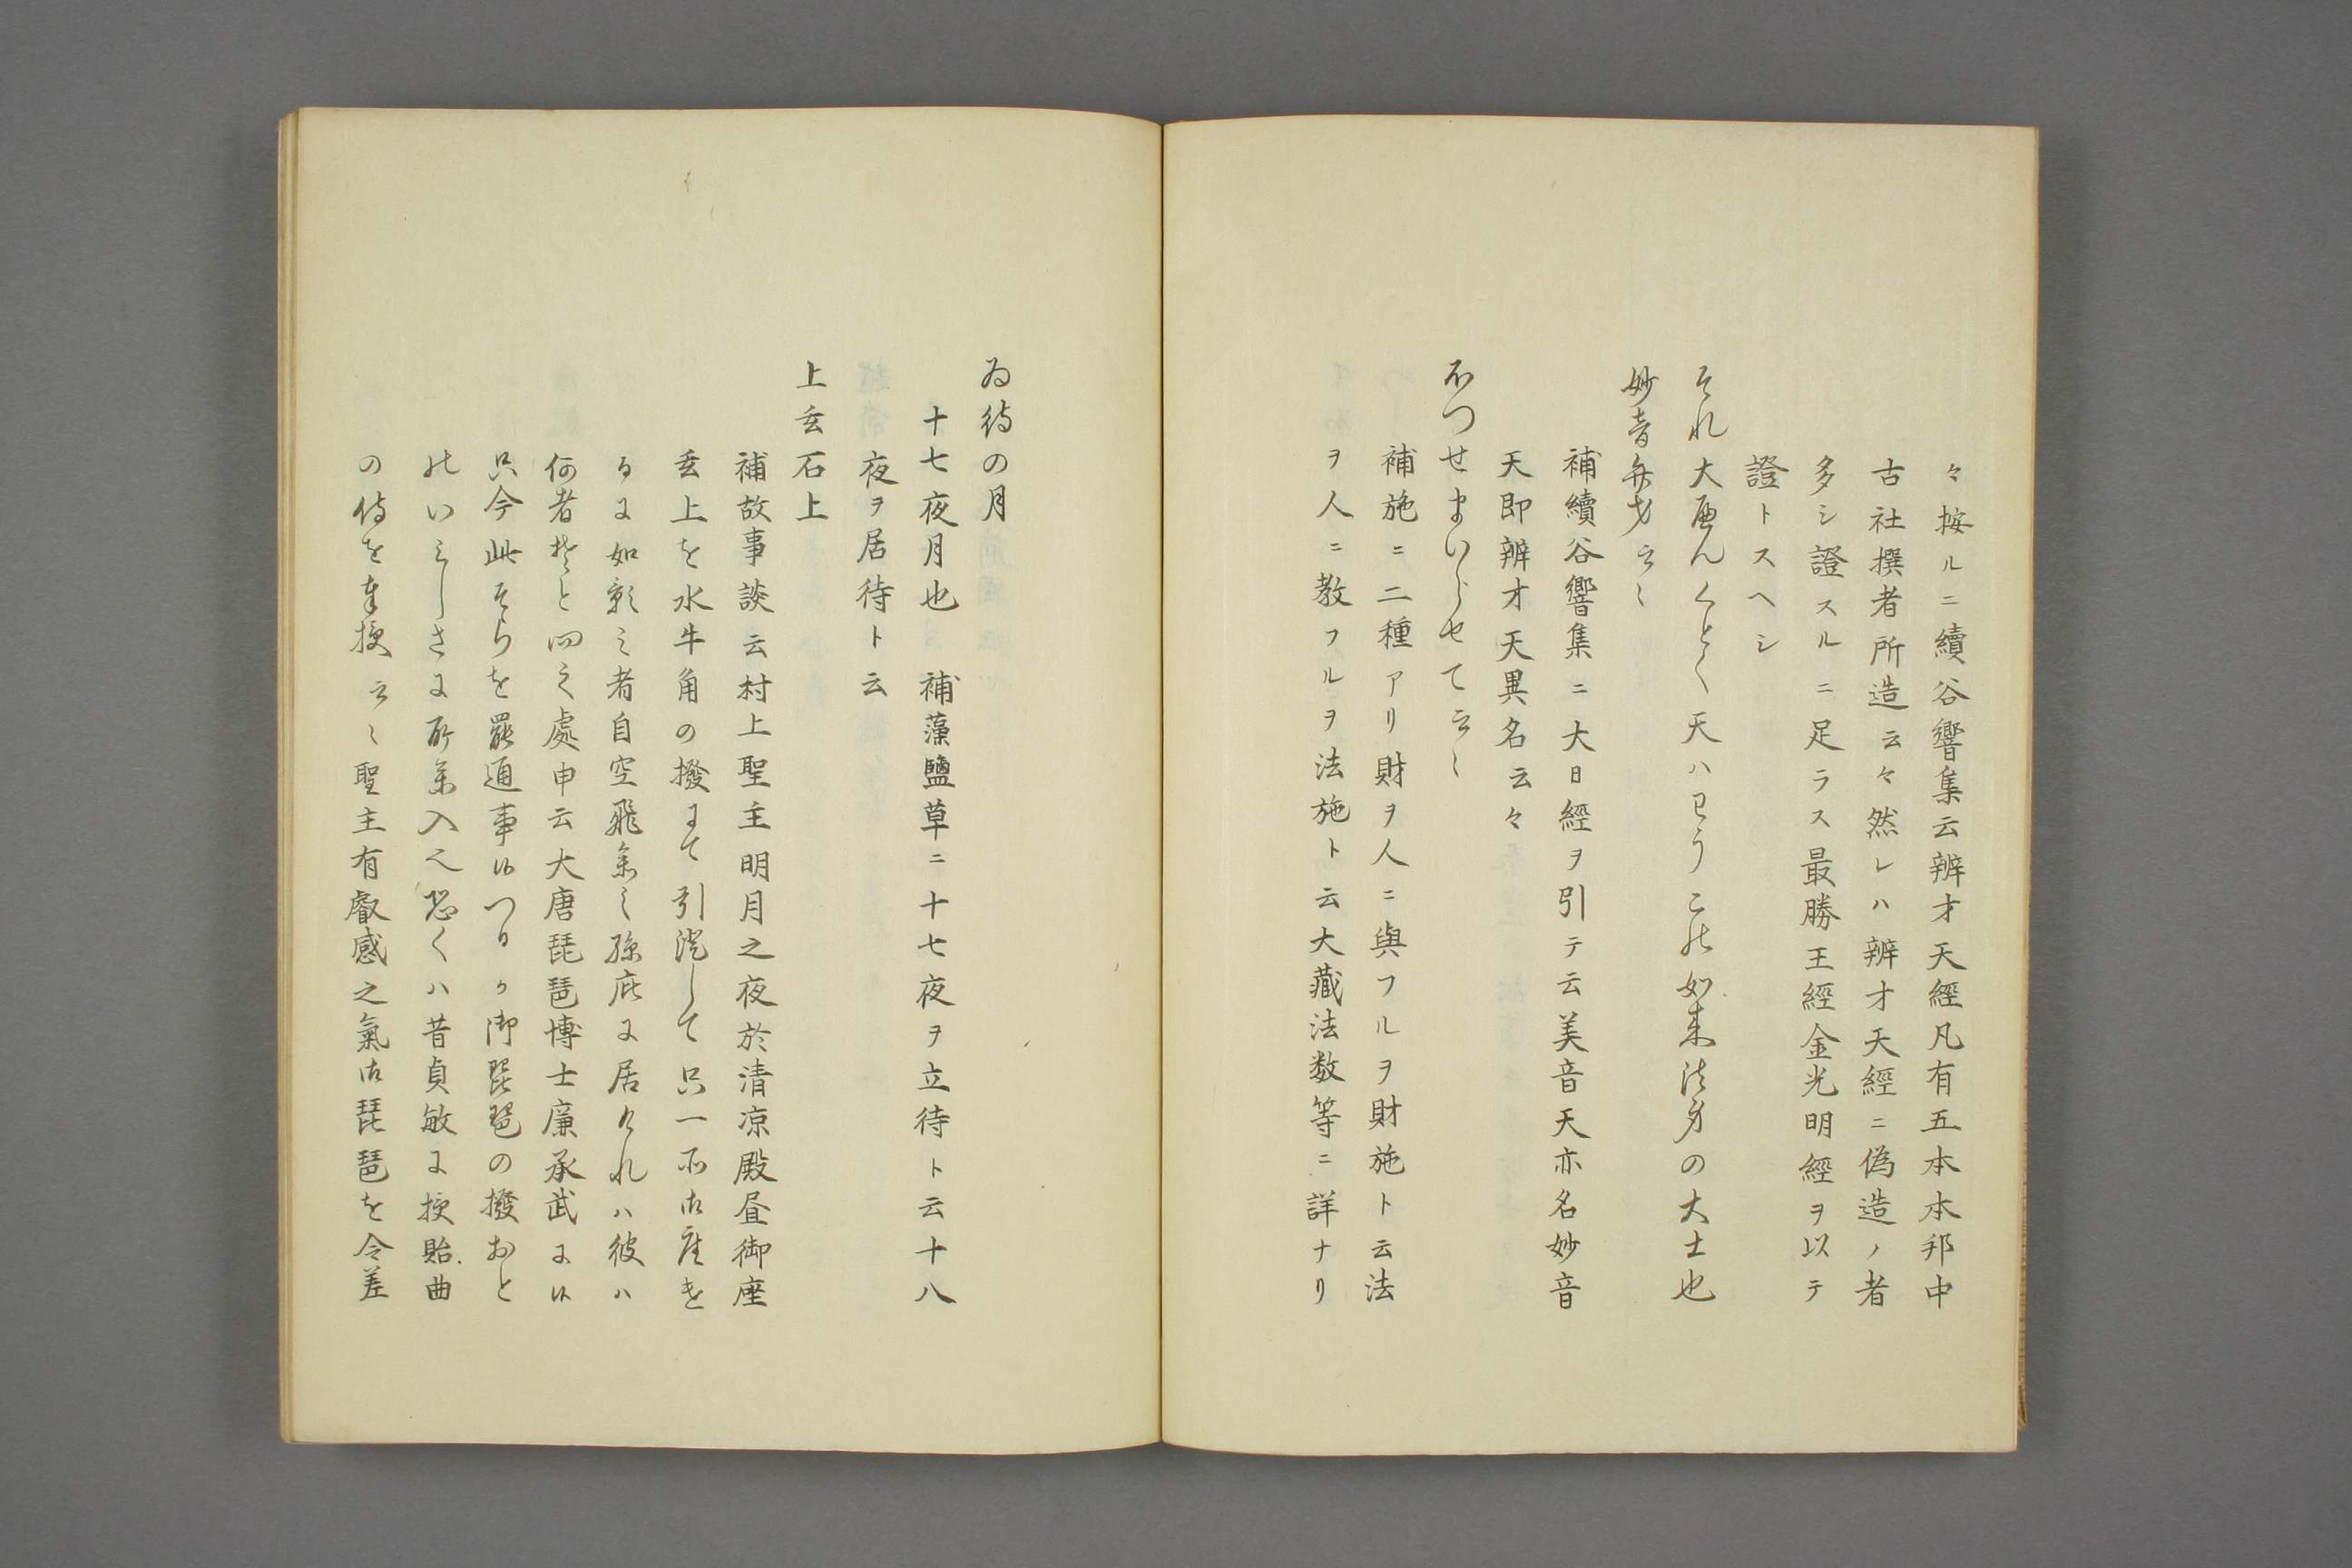 々按ルニ續谷響集云辨才天經凡有五本本邦中
古社撰者所造云々然レハ辨才天經ニ偽造ノ者
多シ證スルニ足ラス最勝王經金光明經ヲ以テ
證トスヘシ
それ大へんくとく天ハわうこの如来法身の大士也
妙音弁才云々
補續谷響集ニ大日經ヲ引テ云美音天亦名妙音
天即辨才天異名云々
ほつせまいらせて云々
補施ニ二種アリ財ヲ人ニ與フルヲ財施ト云法
ヲ人ニ教フルヲ法施ト云大藏法数等ニ詳ナリ
ゐ待の月
十七夜月也 補藻鹽草ニ十七夜ヲ立待ト云十八
夜ヲ居待ト云
上玄石上
補故事談云村上聖主明月之夜於清凉殿昼御座
玄上を水牛角の撥にて引澄して只一所御座き
るに如影之者自空飛来之孫庇に居けれハ彼ハ
何者そと問之處申云大唐琵琶博士廉承武に候
只今此そらを罷通事候つるか御琵琶の撥おと
のいみしさに所参入也恐くハ昔貞敏に授貽曲
の侍を奉授云々聖主有叡感之氣御琵琶を令差